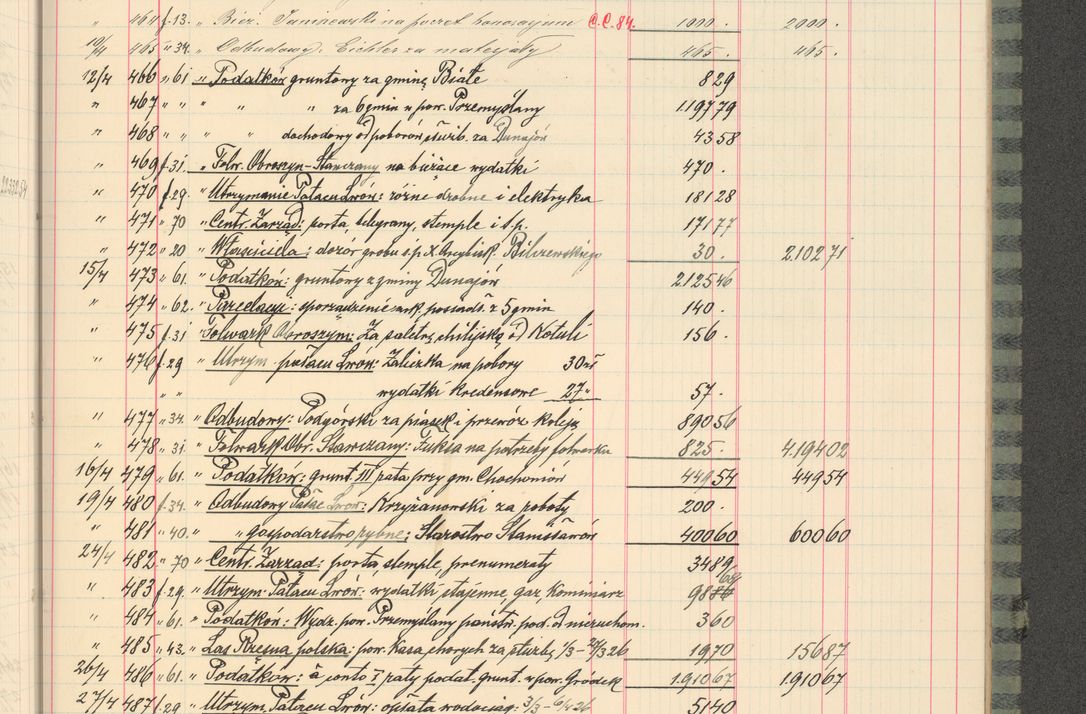 " 464 f.13. " Bier. Taniawski na poczet honorarjum C.C.84. 1000. 2000.
10/4 465 " 34. " Odbudowy: Eichler za materjały 465. 465.
12/4 466 " 61 " Podatków gruntowy za gminę Białe 829
" 467 " " " " " za 6 gmin w pow. Przemyślany 119779
" 468 " " " " dochodowy od poborów służb. za Dunajów 4358
" 469 f.31. " Folw. Obroszyn-Stawczany na bieżące wydatki 470.
" 470 f.29. " Utrzymanie Pałacu Lwów: różne drobne i elektryka 18128
" 471 " 70 " Centr. Zarząd: porta, telegramy, stemple i t.p. 17177
" 472 " 20 " Właściciela: dozór grobu ś.p. X. Arcybisk. Bilczewskiego 30. 210271
15/4 473 " 61. " Podatków: gruntowy z gminy Dunajów 212546
" 474 " 62. " Parcelacyi: sporządzenie ark. posiadł. z 5 gmin 140.
" 475 f.31 " Folwark Obroszyn: Za saletrę chilijską od Motuli 156.
" 476 f.29 " Utrzym. pałacu Lwów: Zaliczka na pobory 30 zł
" " wydatki kredensowe 27" 57.
" 477 " 34. " Odbudowy: Podgórski za piasek i przewóz koleją 89056
" 478 " 31. " Folwark Obr. Stawczany: Fuksa na potrzeby folwarku 825. 419402
16/4 479 " 61. " Podatków: grunt. III rata przy gm. Chochoniów 44954 44954
19/4 480 f.34. " Odbudowy Pałac Lwów: Krzyżanowski za roboty 200.
" 481 " 40. " " gospodarstwo rybne: Starostwo Stanisławów 40060 60060
24/4 482 " 70 " Centr. Zarząd: porta, stemple, prenumeraty 3489
" 483 f.29. " Utrzym. Pałacu Lwów: wydatki stajenne, gaz, kominiarz 98
" 484 " 61. " Podatków: Wydz. pow. Przemyślany państw. pod. od nieruchom. 360
" 485 " 43. " Las Rzesna polska: pow. Kasa chorych za służbę 1/3 - 28/3 26 1970 15687
26/4 486 " 61. " Podatków: à conto I raty podat. grunt. w pow. Gródek 191067 191067
27/4 487 f.29 " Utrzym. Pałacu Lwów: opłata wodociąg. 5140